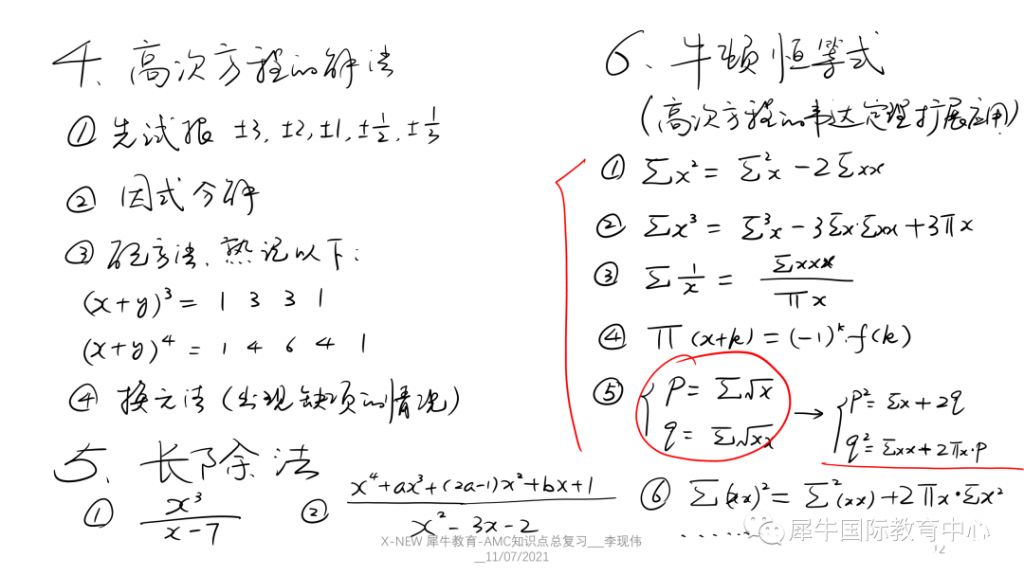 4、高次方程的解法
① 先试根 ±3, ±2, ±1, ±1/2, ±1/3
② 因式分解
③ 配方法、熟记以下:
(x+y)³ = 1 3 3 1
(x+y)⁴ = 1 4 6 4 1
④ 换元法 (出现缺项的情况)
5、长除法
① x³/(x-7)
② (x⁴+ax³+(2a-1)x²+bx+1)/(x²-3x-2)
6、牛顿恒等式
(高次方程的韦达定理扩展应用)
① Σx² = Σ²x - 2Σxx
② Σx³ = Σ³x - 3Σx·Σxx + 3πx
③ Σ1/x = Σxxx/πx
④ π(x+k) = (-1)ᵏ·f(k)
⑤ { p = Σ√x
q = Σ√xx
→ { p² = Σx + 2q
q² = Σxx + 2πx·p
⑥ Σ(xx)² = Σ²(xx) + 2πx·Σx²
......
X-NEW 犀牛教育-AMC知识点总复习__李现伟
__11/07/2021
犀牛国际教育中心
12